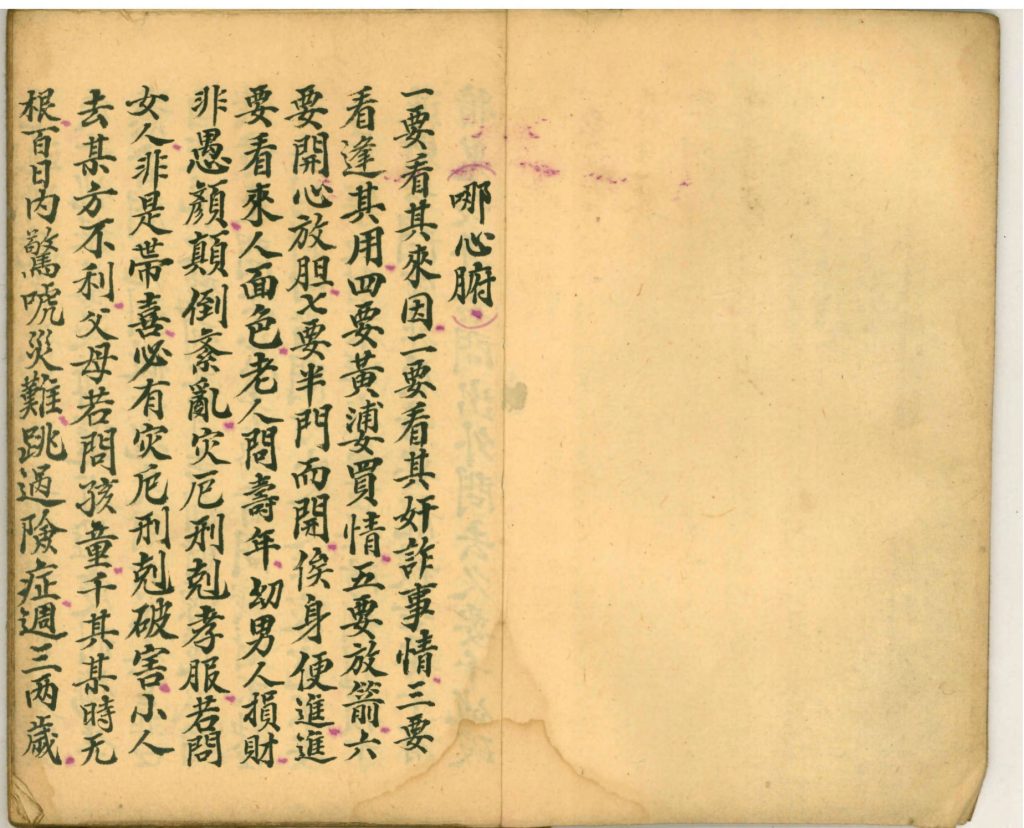 (哪心腑)
一要看其來因二要看其奸詐事情三要
看逢其用四要黃婆買情五要放箭六
要開心放胆七要半門而開俟身便進進
要看來人面色老人問壽年幼男人損財
非愚顏顛倒紊亂灾厄刑剋孝服若問
女人非是帶喜必有灾厄刑剋破害小人
去某方不利父母若問孩童千其某時无
根百日内驚唬災難跳過險症週三两歲